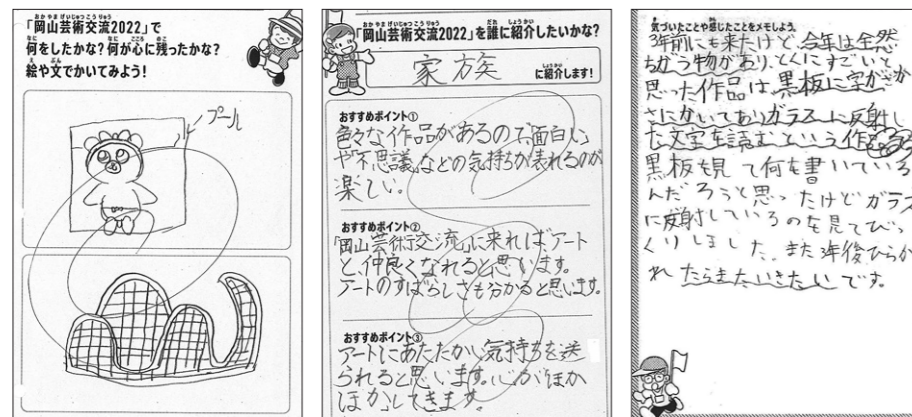 おかやまげいじゅつこうりゅう
「岡山芸術交流2022」で
なに なに こころ のこ
何をしたかな?何が心に残ったかな?
え ぶん
絵や文でかいてみよう!
プール
おかやまげいじゅつこうりゅう だれ しょうかい
「岡山芸術交流2022」を誰に紹介したいかな?
家族
しょうかい
に紹介します!
おすすめポイント①
色々な作品があるので「面白い」
や「不思議」などの気持ちが表れるのが
楽しい。
おすすめポイント②
「岡山芸術交流」に来ればアート
と、仲良くなれると思います。
アートのすばらしさも分かると思います。
おすすめポイント③
アートにあたたかい気持ちを送
られると思います。心がほか
ほかしてきます。
き かん
気づいたことや感じたことをメモしよう。
3年前にも来たけど、今年は全然
ちがう物があり、とくにすごいと
思った作品は、黒板に字がさか
さにかいてありガラスに反射し
た文字を読むという作品
黒板を見て何を書いている
んだろうと思ったけどガラス
に反射しているのを見てびっ
くりしました。また3年後ひらか
れたらまたいきたいです。